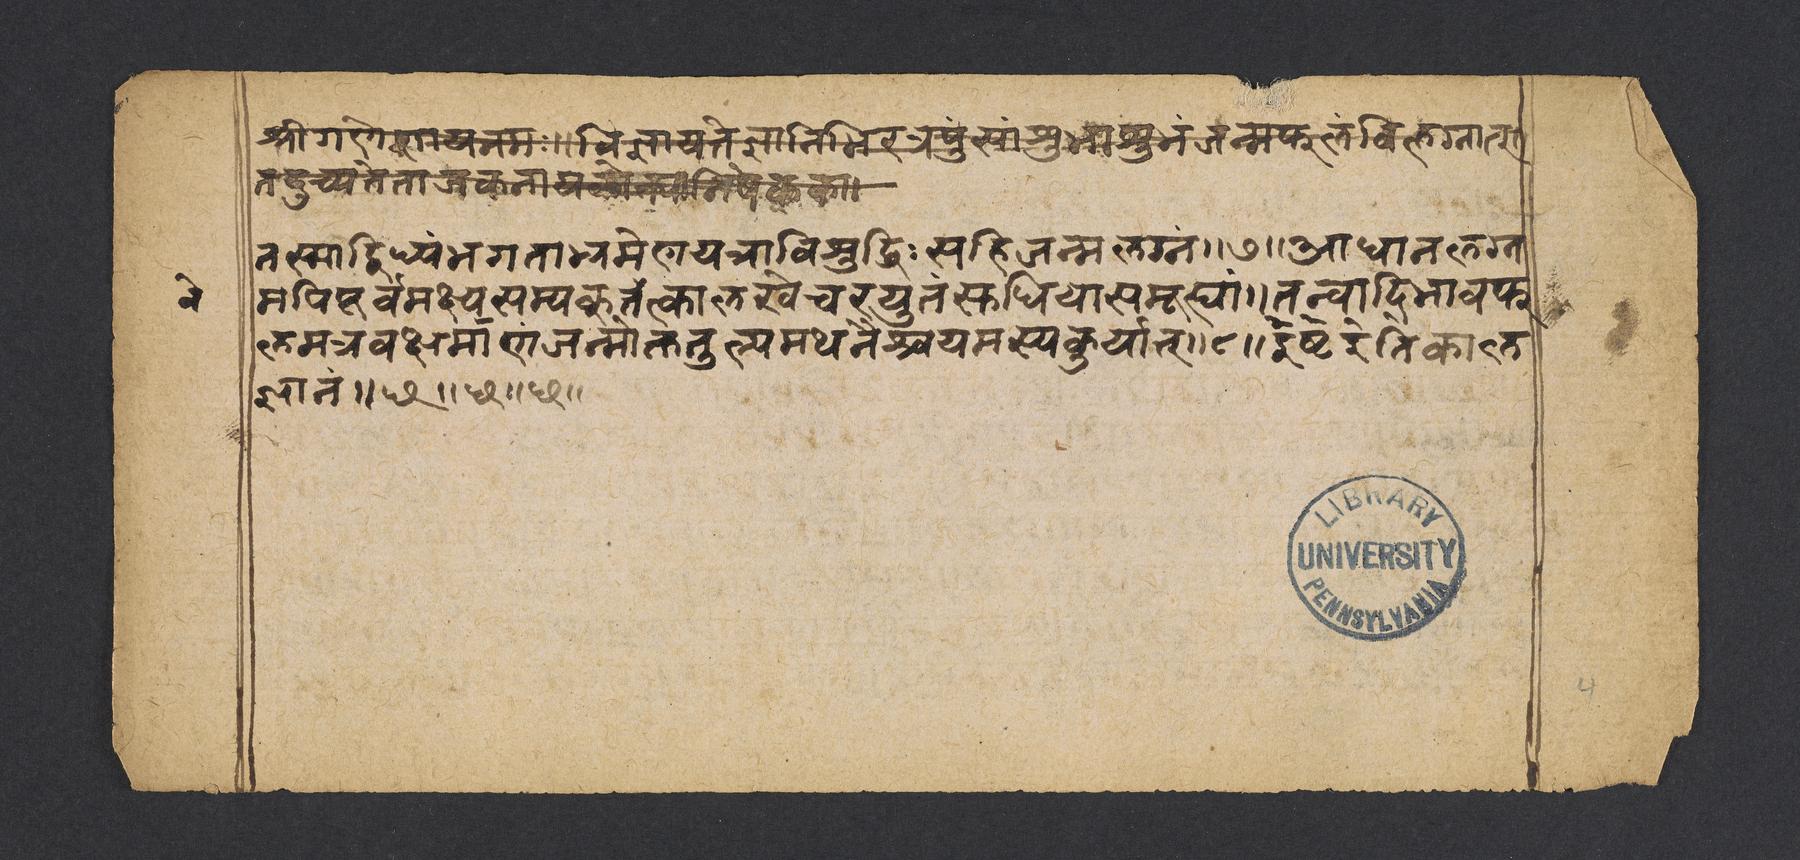 श्रीगणेशायनमः॥विज्ञायतेज्ञातिभिरत्रपुंसांशुभाशुभंजन्मफलंविलग्नात्
तदुच्यतेताजकनीय
तस्माद्विध्यंभगताभ्रमेणयत्राविशुद्धिःसहिजन्मलग्नं॥७॥आधानलग्न
मपिपूर्वमक्ष्यसम्यक्तत्कालखेचरयुतंस्फधियासमूह्यां॥तन्वादिभावफ
३
लमत्रवक्ष्यमाणंजन्मोक्ततुल्यमथनैश्चयमस्यकुर्यात्॥८॥इष्टइतिकाल
ज्ञानं॥छ॥छ॥छ॥
LIBRARY
UNIVERSITY
PENNSYLVANIA
4